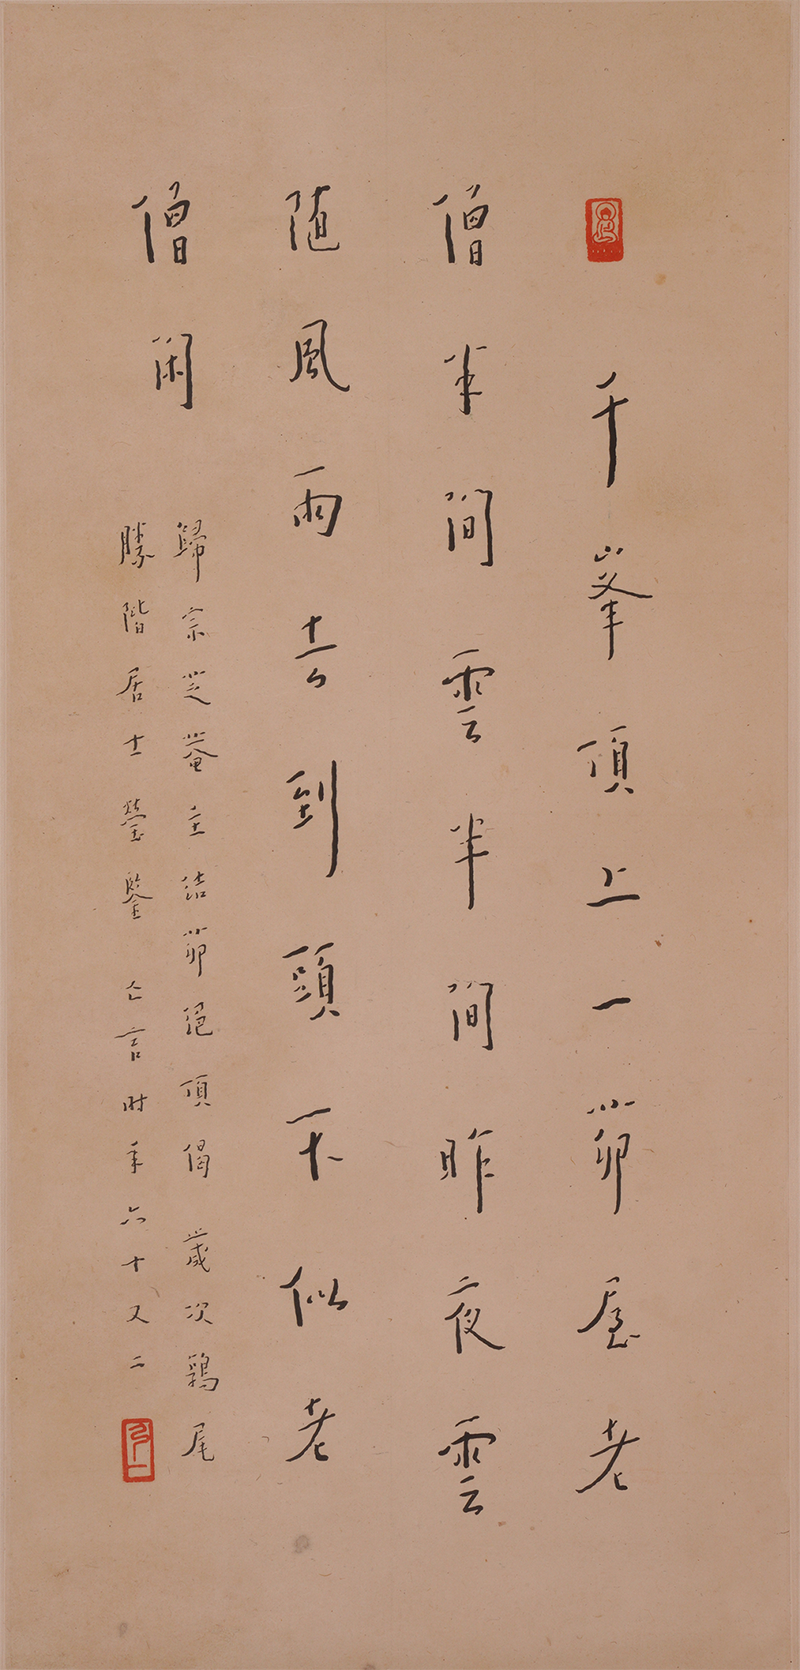 千峯頂上一茆屋老
僧半間雲半間昨夜雲
随風雨去到頭不似老
僧閑
歸宗芝菴主結茆絕頂偈歲次鶉尾
勝階居士瑩鑒亡言时年六十又二